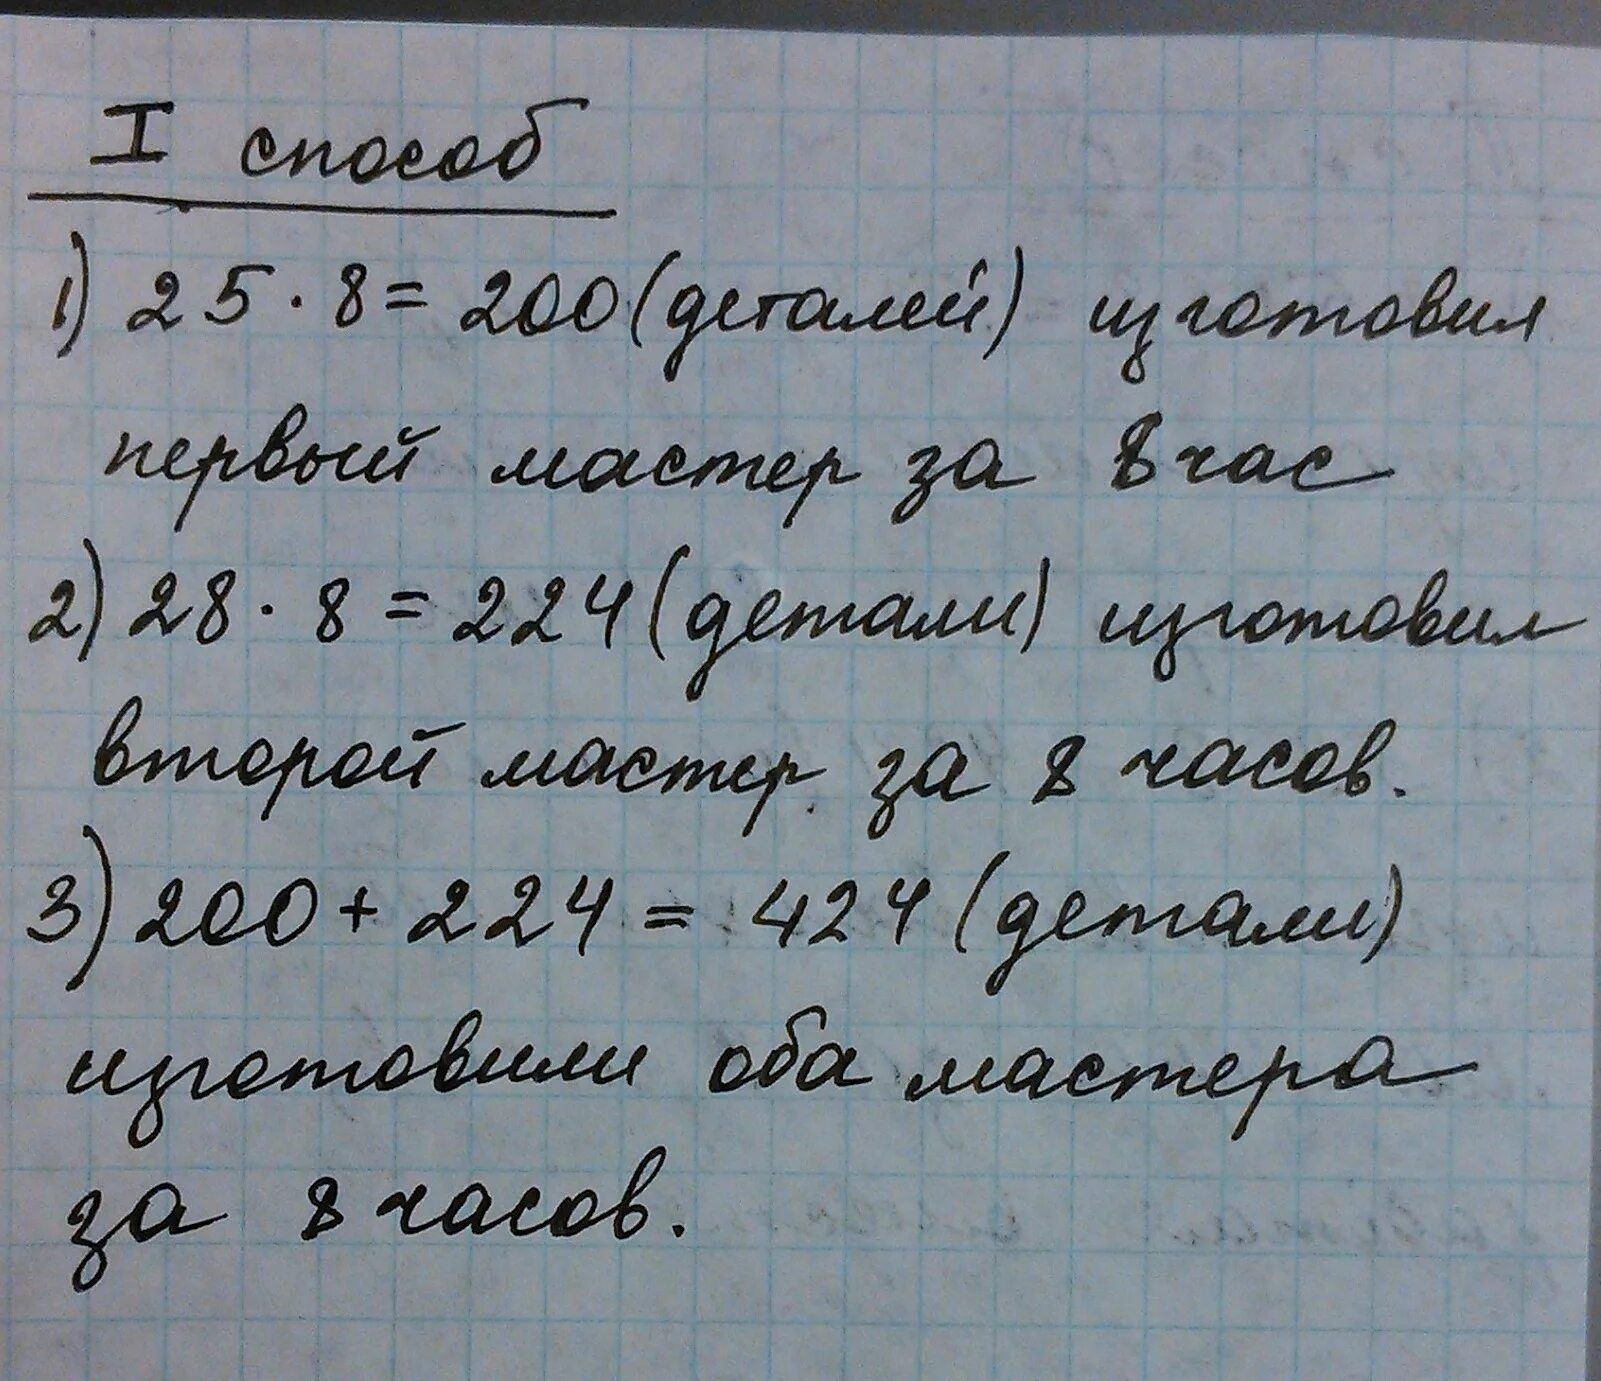 I способ
1) 25 · 8 = 200 (деталей) изготовил
первый мастер за 8 час
2) 28 · 8 = 224 (детали) изготовил
второй мастер за 8 часов.
3) 200 + 224 = 424 (детали)
изготовили оба мастера
за 8 часов.